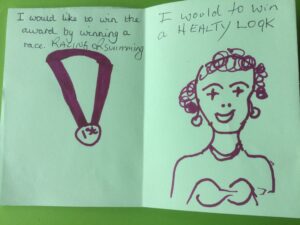 I would like to win the
award by winning a
race. RACING OR SWimming
1st
I would to win
a HEALTY LOOK